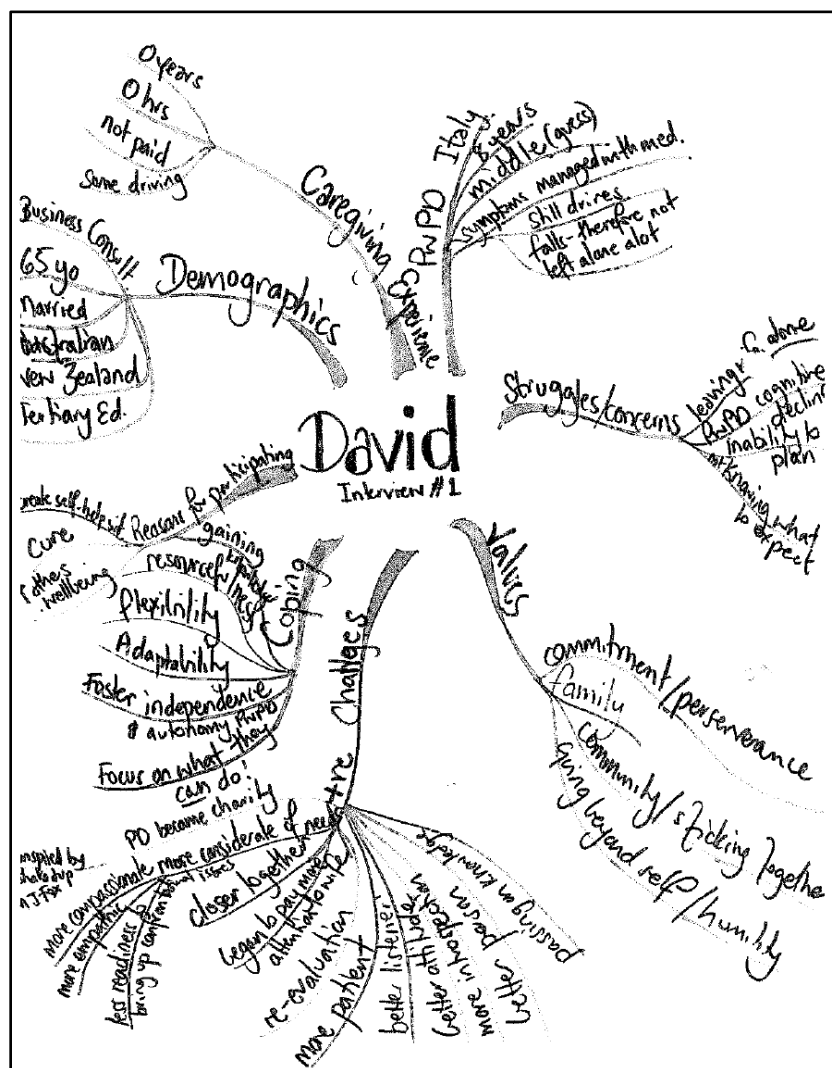 David
Interview #1
Caregiving
Experience
0 years
0 hrs
not paid
Some driving
PwPD
Italy
8 years
middle (guess)
symptoms managed with med.
still drives
falls - therefore not
left alone alot
Demographics
Business Consult.
65 yo
married
Australian
New Zealand
Tertiary Ed.
Struggles/concerns
leaving
alone
PwPD cognitive
decline
inability to
plan
not knowing what
to expect
Reasons for participating
create self-help
gaining
knowledge
cure
others
wellbeing
Coping
resourcefulness
flexibility
Adaptability
Foster independence
& autonomy PwPD
Focus on what they
can do!
Values
commitment/perserverance
family
community/sticking together
going beyond self/humility
+re Changes
PD became charity
more considerate of need
inspired by
J Fox
more compassionate
more empathic
less readiness to
bring up confrontational issues
closer together
began to pay more
attention to wife
re-evaluation
more patient
better listener
better attitude
more introspection
better person
passing on knowledge